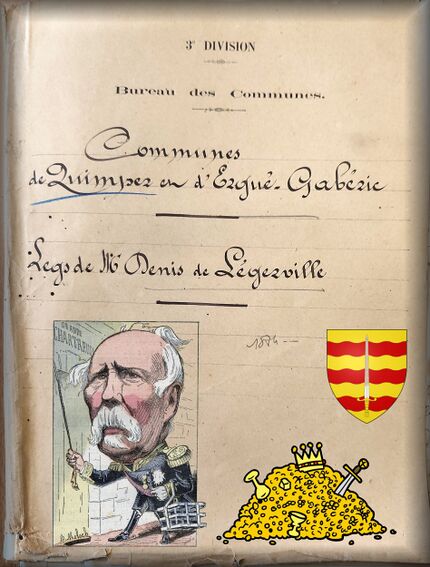 3e DIVISION
Bureau des Communes.
Communes
de Quimper et d'Ergué-Gabéric
Legs de Mr Denis de Légerville
1874
CHARTRES